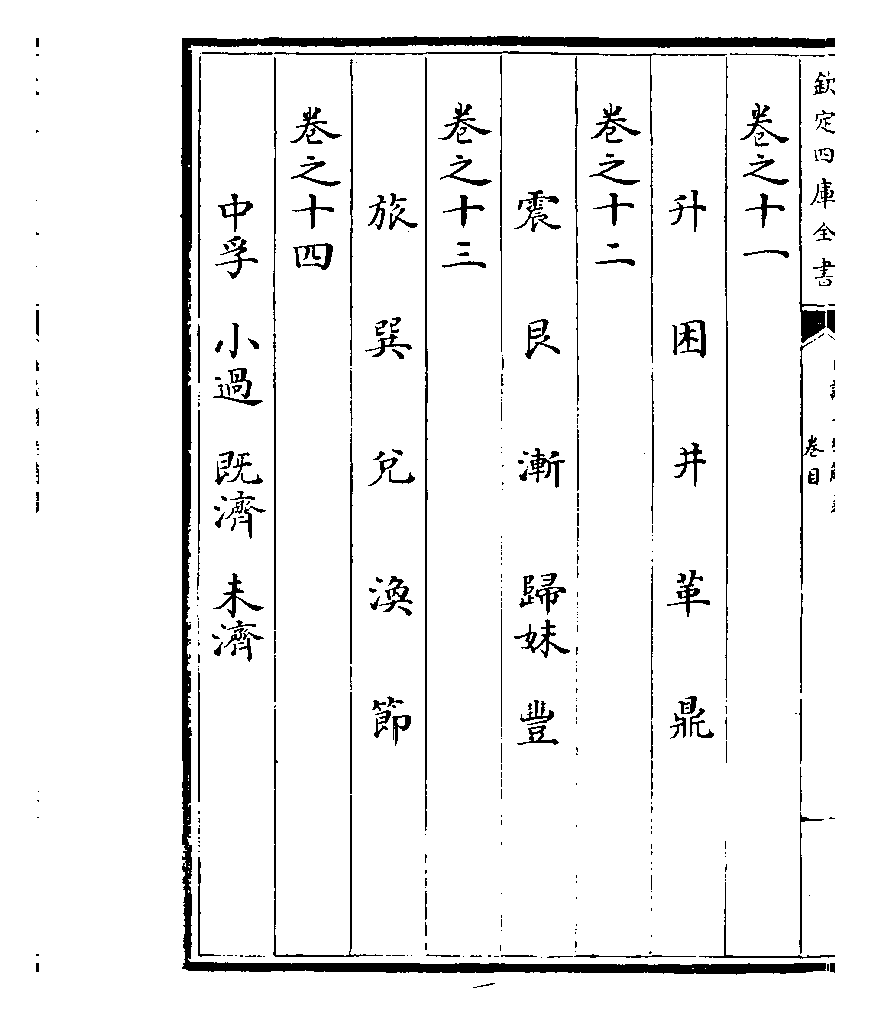 欽定四庫全書
卷目
卷之十一
升 困 井 革 鼎
卷之十二
震 艮 漸 歸妹 豐
卷之十三
旅 巽 兌 渙 節
卷之十四
中孚 小過 既濟 未濟